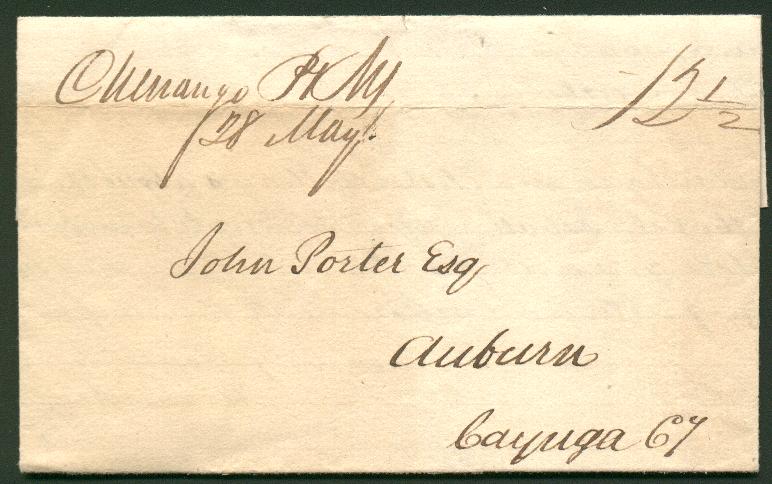 Chenango Pt NY
28 May
12 1/2
John Porter Esq
Auburn
Cayuga Cy